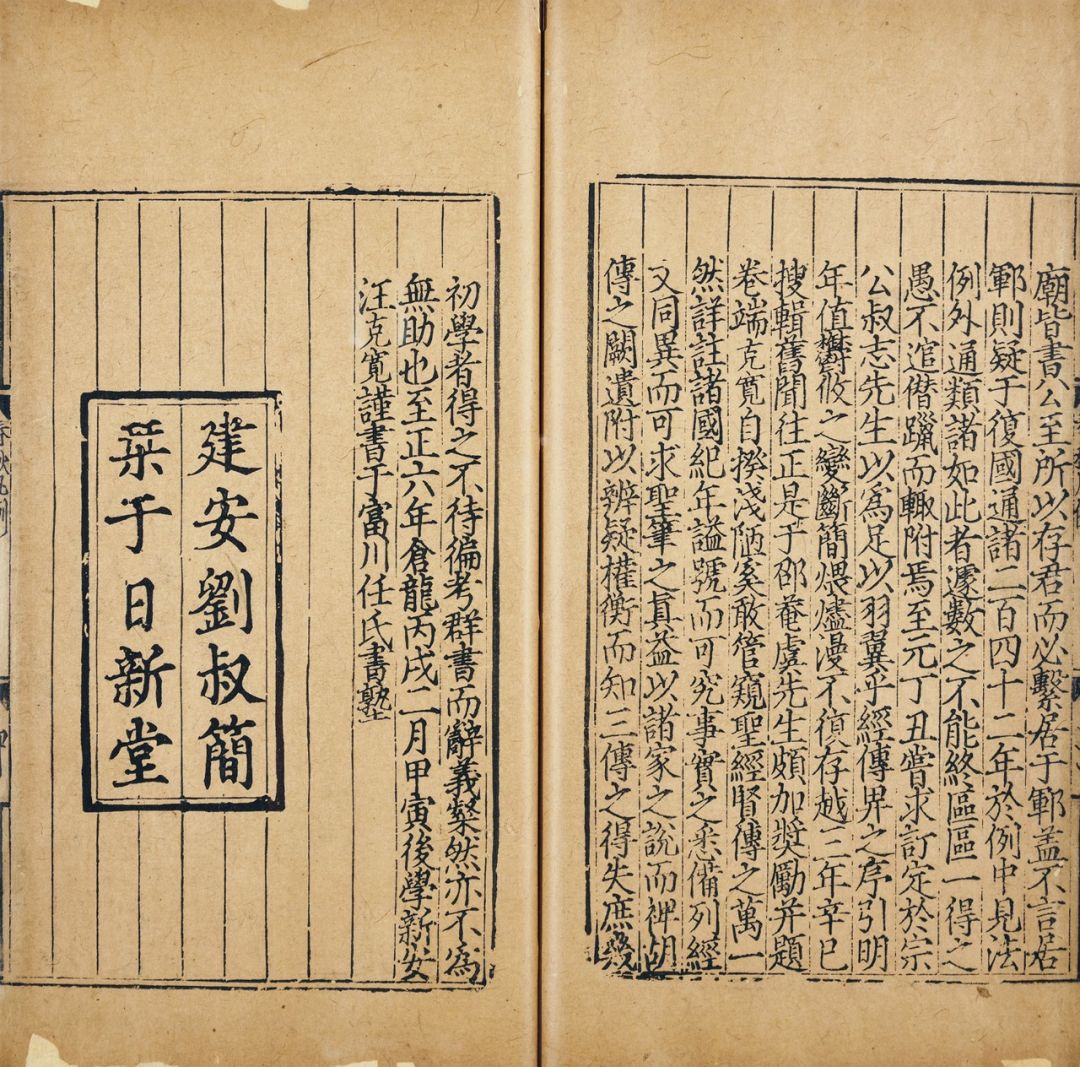 廟皆書公至所以存君而必繫居于鄆盖不言居
鄆則疑于復國通諸二百四十二年於例中見法
例外通類諸如此者遽數之不能終區區一得之
愚不逭僣躐而輙附焉至元丁丑嘗求訂定於宗
公叔志先生以為足以羽翼乎經傳畀之序引明
年值鬱攸之變斷簡煨燼漫不復存越三年辛巳
搜輯舊聞往正是于邵菴虞先生頗加奬勵并題
卷端克寬自揆浅陋奚敢管窺聖經賢傳之萬一
然詳註諸國紀年謚號而可究事實之悉備列經
文同異而可求聖筆之真益以諸家之說而裨胡
傳之闕遺附以辨疑權衡而知三傳之得失庶幾
初學者得之不待徧考群書而辭義粲然亦不為
無助也至正六年倉龍丙戌二月甲寅後學新安
汪克寬謹書于富川任氏書塾
建安劉叔簡
栞于日新堂